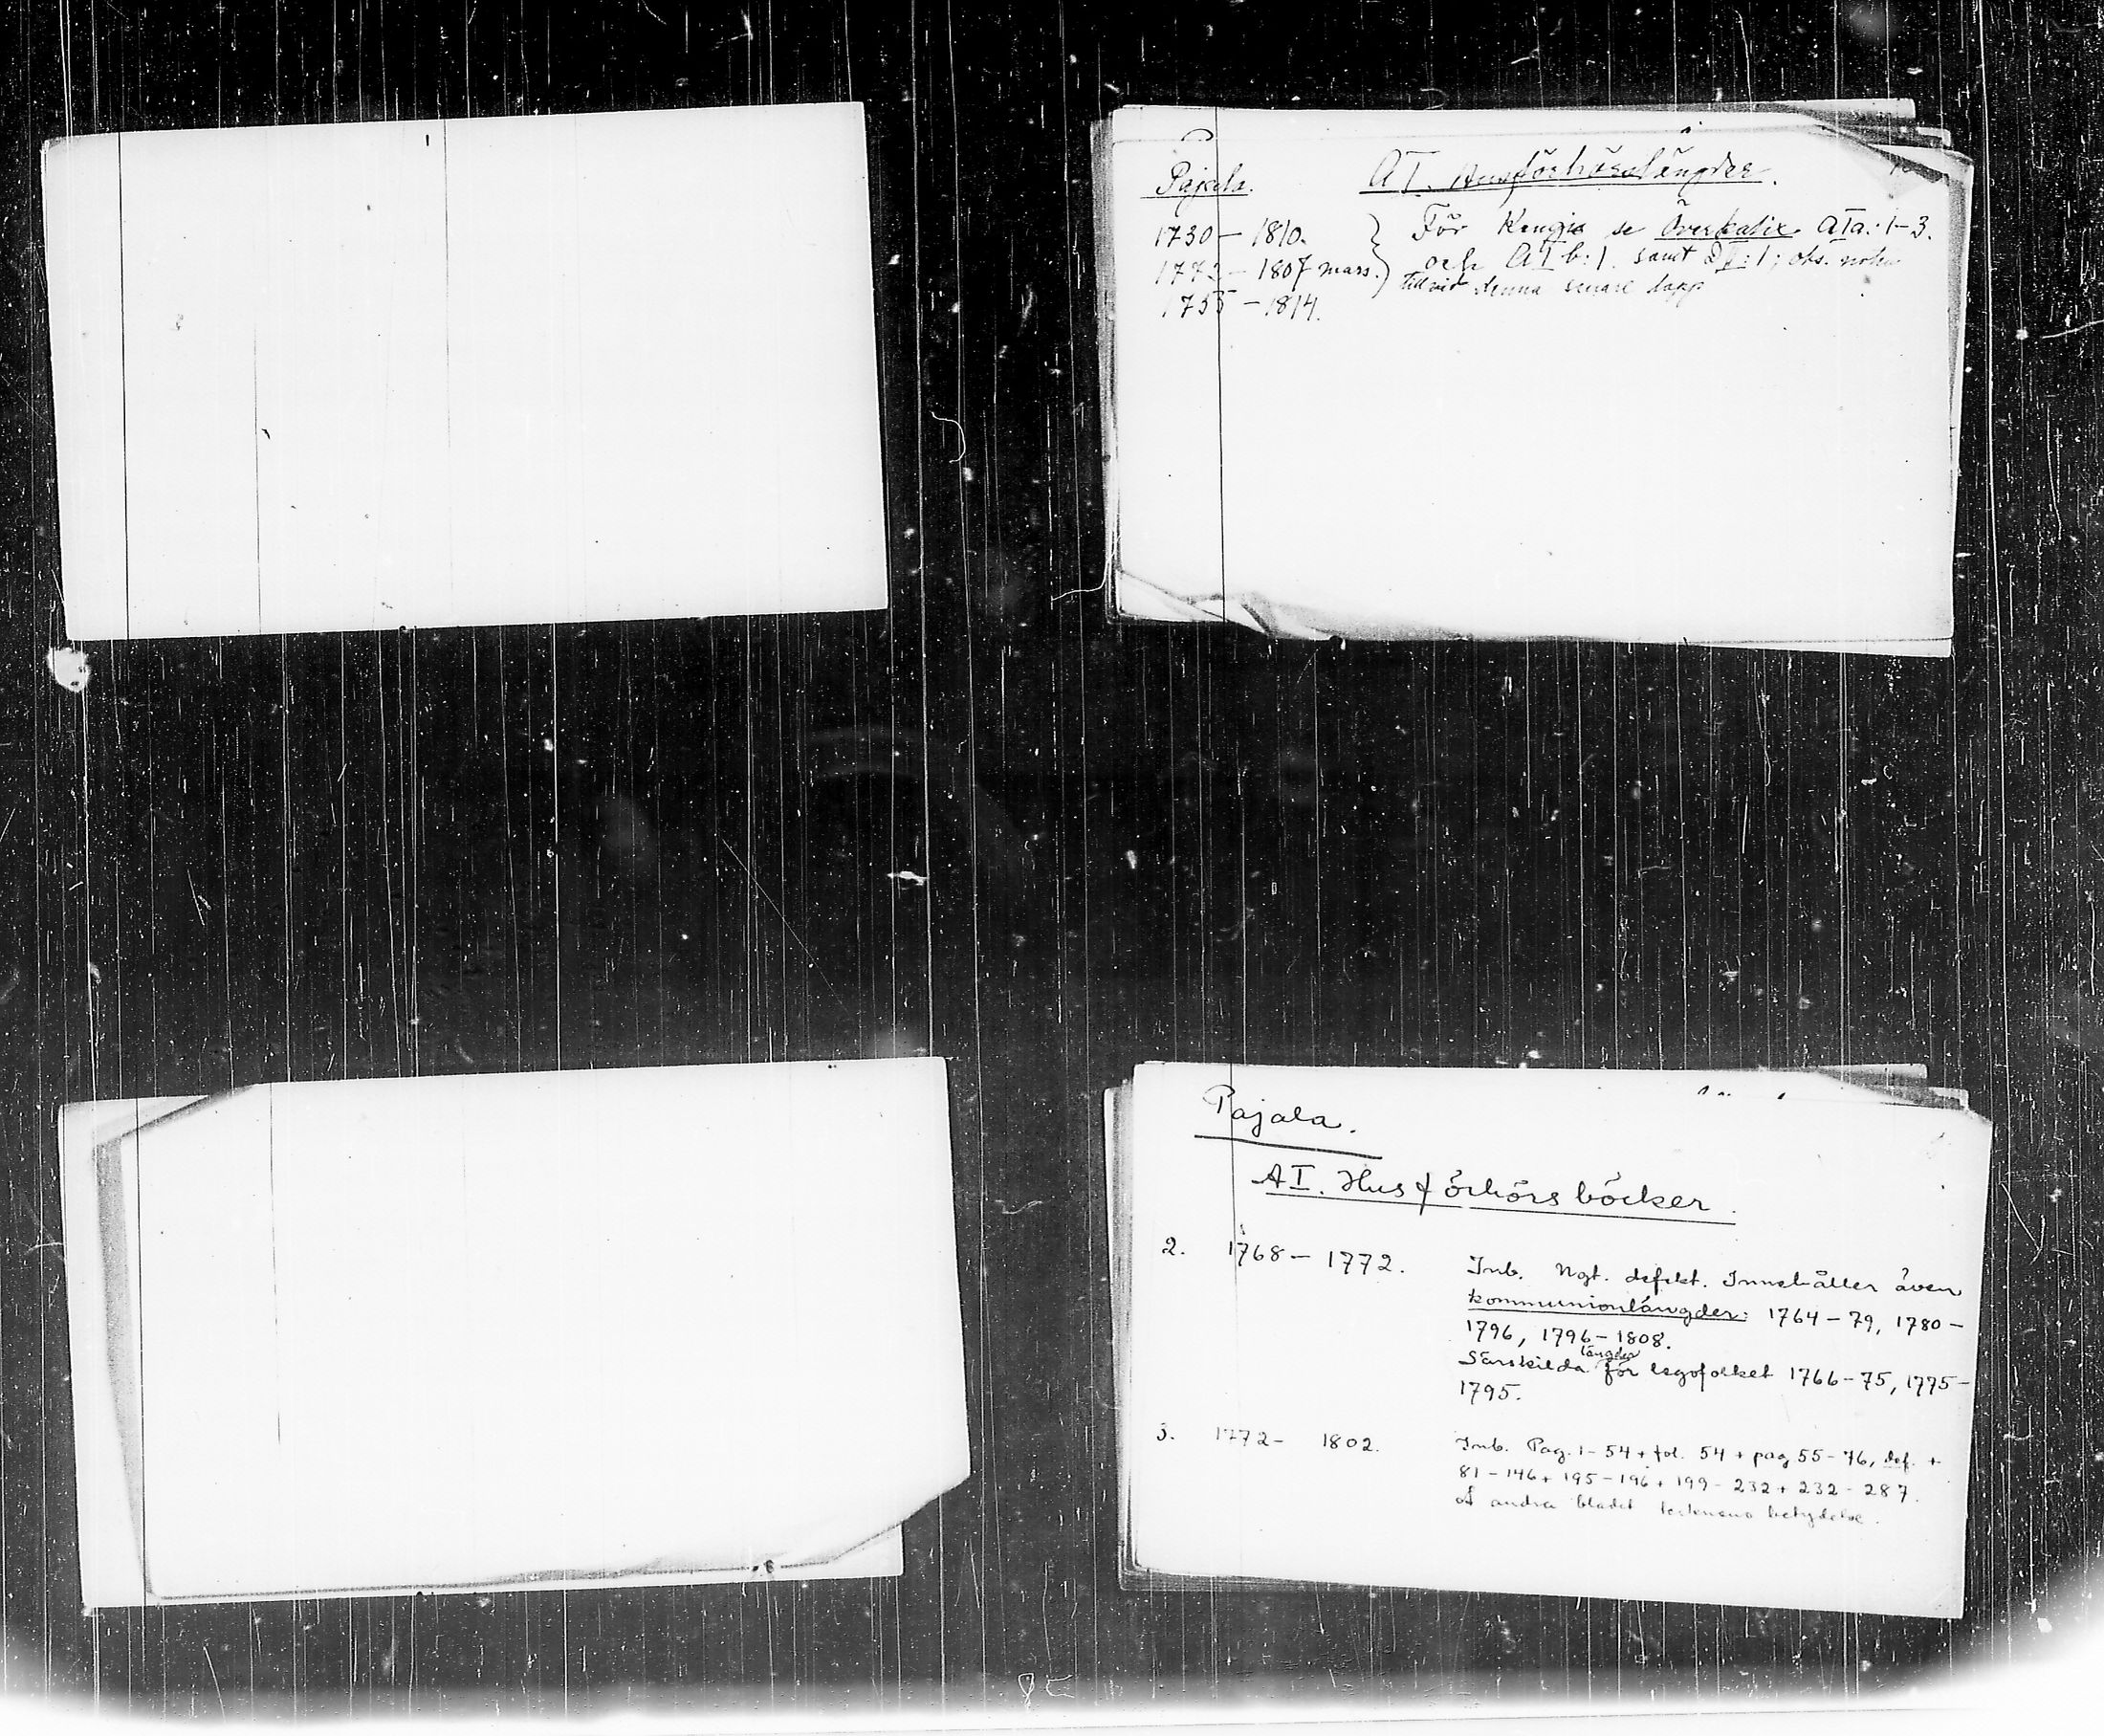 Pajala. AI. Husförhörslängder.
1730 – 1810. } För Kengis se Överkalix AIa: 1–3.
1772 – 1807 } och AIb: 1. samt DI: 1; obs.
1755 – 1814. denna senare
Pajala.
AI. Husförhörsböcker.
2. 1768 – 1772. Inb. Ngt. defekt. Innehåller även
kommunionlängder: 1764 – 79, 1780 –
1796, 1796 – 1808.
längder
Särskilda för legofolket 1766 – 75, 1775 –
1795.
3. 1772 – 1802. Inb. Pag. 1 – 54 + fol. 54 + pag 55 – 76, def. +
81 – 146 + 195 – 196 + 199 – 232 + 232 – 287.
Å andra bladet tecknens betydelse.